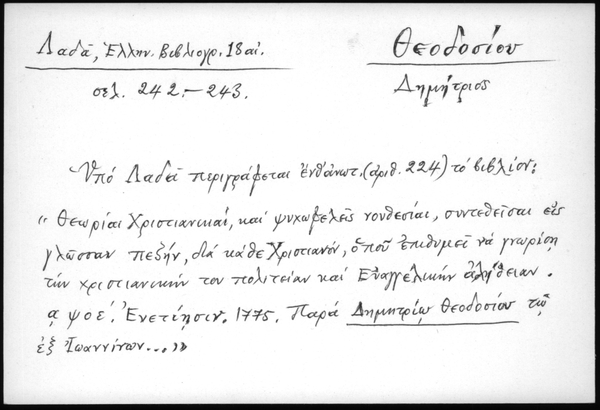 Λαδᾶ, Ἑλλην. Βιβλιογρ. 18 αἰ.
Θεοδοσίου
σελ. 242.-243.
Δημήτριος
Ὑπό Λαδᾶ περιγράφεται ἐνθάνωτ. (ἀριθ. 224) τό βιβλίον:
"Θεωρίαι Χριστιανικαί, καί ψυχωφελεῖς νουθεσίαι, συντεθεῖσαι εἰς
γλῶσσαν πεζήν, διά κάθε Χριστιανόν, ὁποῦ ἐπιθυμεῖ νά γνωρίσῃ
τήν χριστιανικήν του πολιτείαν καί Εὐαγγελικήν ἀλήθειαν.
α ψοέ. Ἐνετίῃσιν. 1775. Παρά Δημητρίῳ Θεοδοσίου τῷ
ἐξ Ἰωαννίνων..."